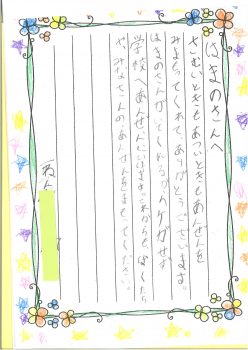 はまのさんへ
さむいときもあついときもあんぜんを
みまもってくれて、ありがとうございます。
はまのさんがいてくれるからケガせず
学校へあんぜんにいけます。これからも、ぼくたち
や、みなさんのあんぜんをまもってください。